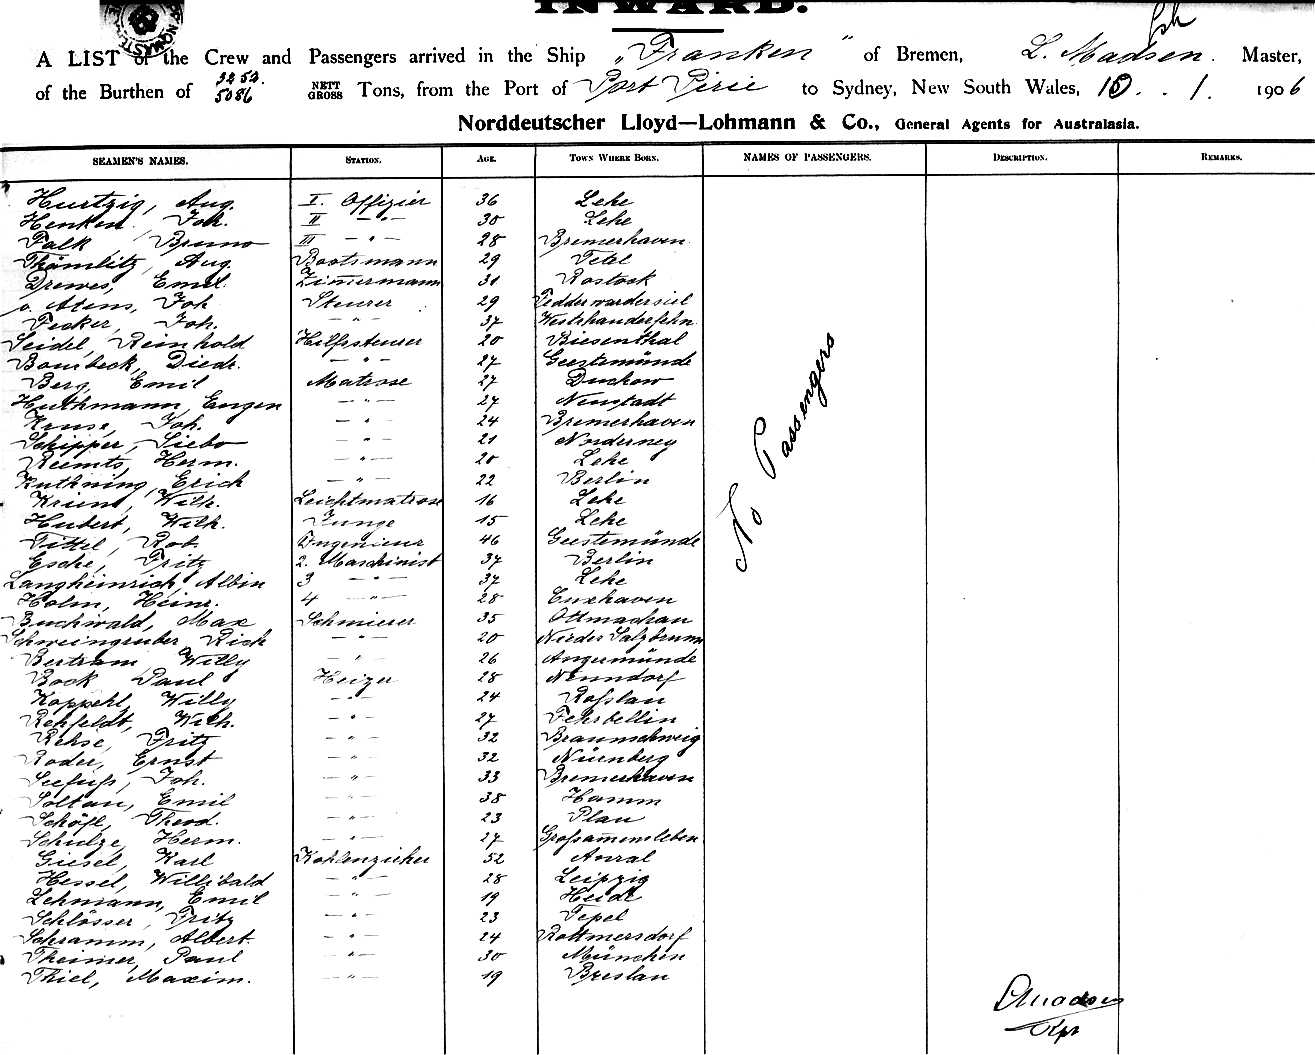 INWARD.
A LIST of the Crew and Passengers arrived in the Ship "Franken" of Bremen, L. Madsen. Master,
of the Burthen of 5086 NETT GROSS Tons, from the Port of Port Pirie to Sydney, New South Wales, 10 . 1. 1906
Norddeutscher Lloyd—Lohmann & Co., General Agents for Australasia.
SEAMEN'S NAMES. STATION. AGE. TOWN WHERE BORN. NAMES OF PASSENGERS. DESCRIPTION. REMARKS.
Hurtzig, Aug. I. Offizier 36 Lehe
Henken Joh. II — " — 30 Lehe
Falk, Bruno III — " — 28 Bremerhaven
Thömlitz, Aug. Bootsmann 29 Tetel
Drewes, Emil Zimmermann 31 Rostock
v. Atens, Joh Steurer 29 Fedderwardersiel
Fecker, Joh. — " — 37 Westrhauderfehn
Seidel, Reinhold Hilfssteurer 20 Biesenthal
Bombeck, Diedr. — " — 27 Geestemünde
Berg, Emil Matrose 27 Duchow
Huthmann, Eugen — " — 27 Neustadt
Kruse, Joh. — " — 24 Bremerhaven
Schipper, Siebo — " — 21 Norderney
Reemts, Herm. — " — 20 Lehe
Kuthning, Erich — " — 22 Berlin
Wilh. Leichtmatrose 16 Lehe
Hubert, Wilh. Junge 15 Lehe
Tittel, Rob. Ingenieur 46 Geestemünde
Esche, Fritz 2. Maschinist 37 Berlin
Langheinrich, Albin 3 — " — 37 Lehe
Holm, Heinr. 4 — " — 28 Cuxhaven
Buchwald, Max Schmierer 35 Ottmachau
Schweingruber Rich — " — 20 Nieder Salzbrunn
Bertram, Willy — " — 26 Angermünde
Bock Paul Heizer 28 Nenndorf
Koppehl, Willy — " — 24 Roßlau
Rehfeldt, Wilh. — " — 27 Fehrbellin
Rehse, Fritz — " — 32 Braunschweig
Roder, Ernst — " — 32 Nürnberg
Seefuß, Joh. — " — 33 Bremerhaven
Soltau, Emil — " — 38 Hamm
Schöfl, Theod. — " — 23 Plan
Schulze, Herm. — " — 27 Großammensleben
Giesel, Karl Kohlenzieher 52
Hessel, Willibald — " — 28 Leipzig
Lehmann, Emil — " — 19 Heide
Schlösser, Fritz — " — 23 Tepel
Schramm, Albert — " — 24 Rottmersdorf
Theimer, Paul — " — 30 München
Thiel, Maxim. — " — 19 Breslau
No Passengers
LMadsen
Kpt